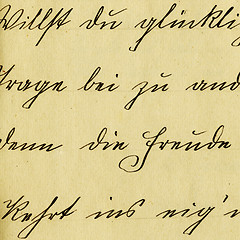 Willst du glückli
trage bei zu and
denn die Freude
Kehrt ins eig'n